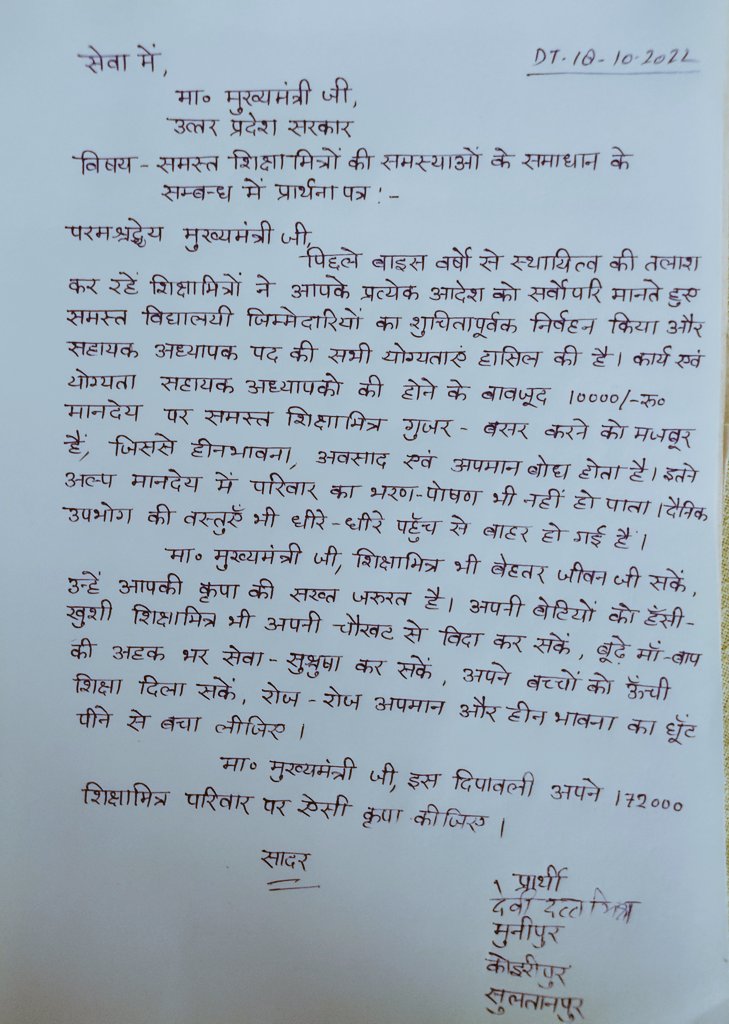 DT. 18-10-2022
सेवा में,
मा० मुख्यमंत्री जी,
उत्तर प्रदेश सरकार
विषय - समस्त शिक्षामित्रों की समस्याओं के समाधान के
सम्बन्ध में प्रार्थना पत्र :-
परमश्रद्धेय मुख्यमंत्री जी,
पिछले बाइस वर्षो से स्थायित्व की तलाश
कर रहें शिक्षामित्रों ने आपके प्रत्येक आदेश को सर्वोपरि मानते हुए
समस्त विद्यालयी जिम्मेदारियों का शुचितापूर्वक निर्वहन किया और
सहायक अध्यापक पद की सभी योग्यताएं हासिल की है। कार्य एवं
योग्यता सहायक अध्यापको की होने के बावजूद 10000/-रु०
मानदेय पर समस्त शिक्षामित्र गुजर - बसर करने को मजबूर
हैं, जिससे हीनभावना, अवसाद एवं अपमान बोध होता है। इतने
अल्प मानदेय में परिवार का भरण-पोषण भी नहीं हो पाता। दैनिक
उपभोग की वस्तुएँ भी धीरे-धीरे पहुँच से बाहर हो गई हैं।
मा० मुख्यमंत्री जी, शिक्षामित्र भी बेहतर जीवन जी सकें,
उन्हें आपकी कृपा की सख्त जरुरत है। अपनी बेटियों को हँसी-
खुशी शिक्षामित्र भी अपनी चौखट से विदा कर सकें, बूढ़े माँ-बाप
की अहक भर सेवा-सुश्रुषा कर सकें, अपने बच्चों को ऊँची
शिक्षा दिला सकें, रोज-रोज अपमान और हीन भावना का घूँट
पीने से बचा लीजिए।
मा० मुख्यमंत्री जी, इस दिपावली अपने 172000
शिक्षामित्र परिवार पर ऐसी कृपा कीजिए।
सादर
प्रार्थी
देवी दत्त मिश्र
मुनीपुर
कोइरीपुर
सुलतानपुर